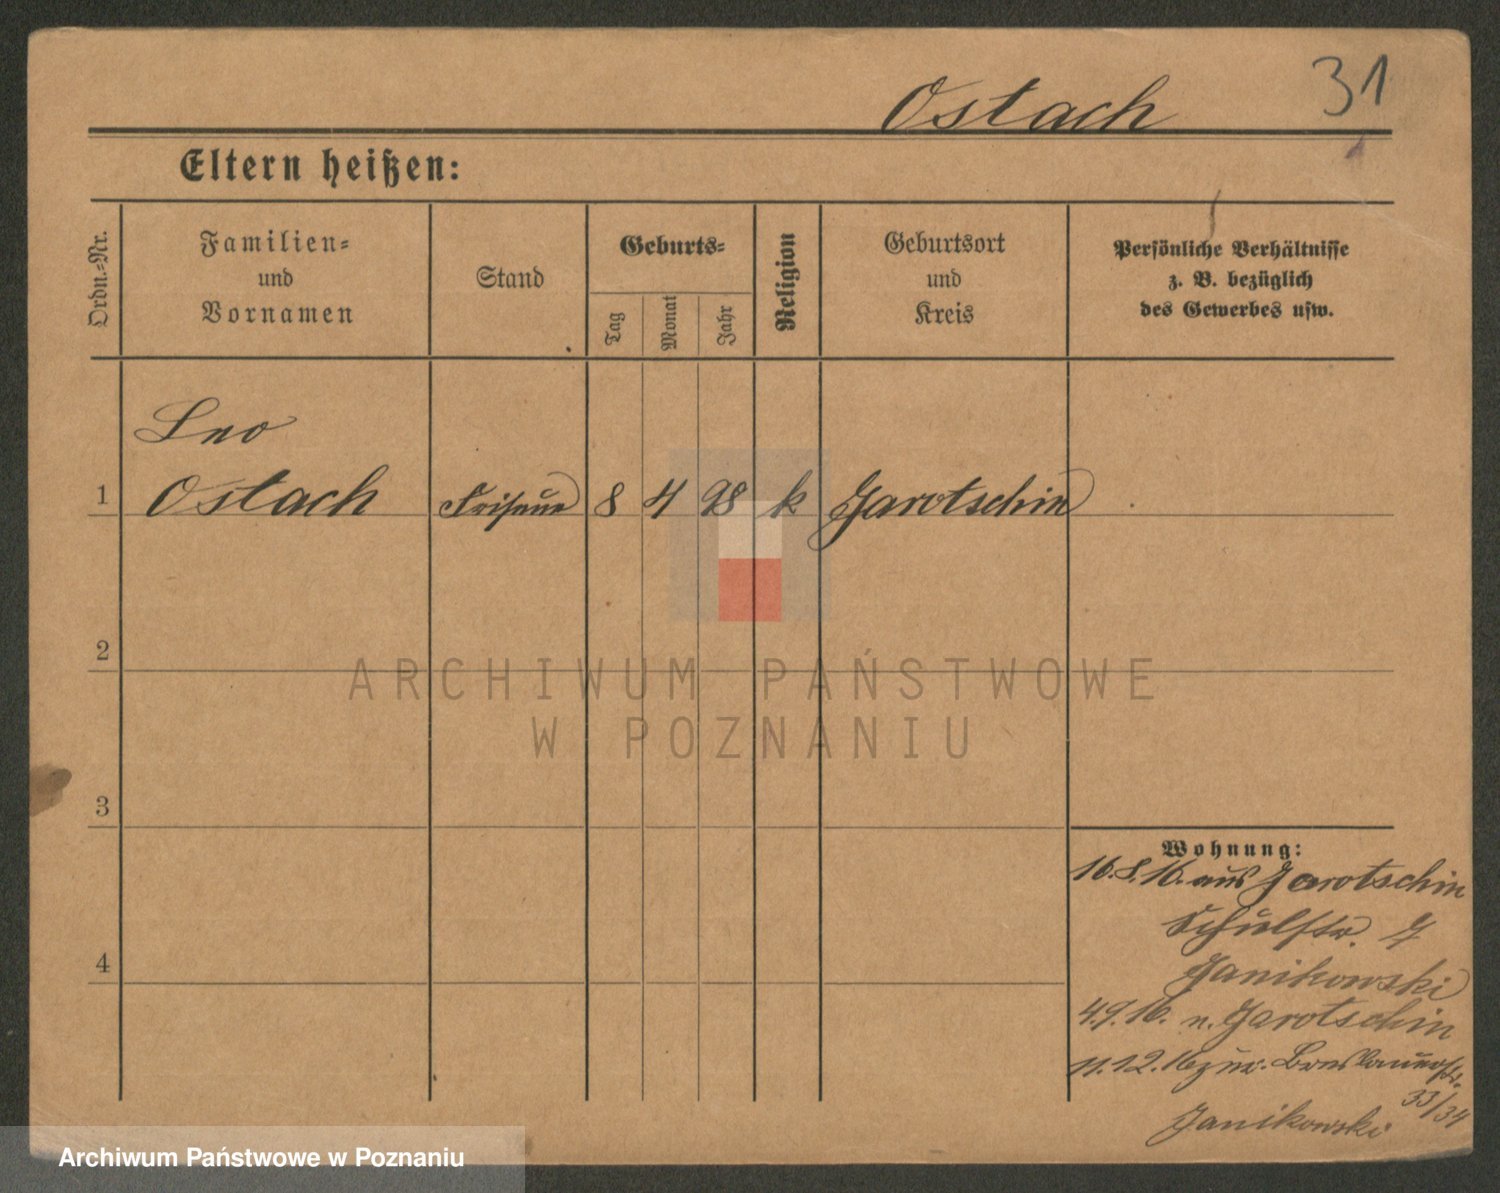 31
Ostach
Eltern heißen:
Ordn.-Nr.
Familien-
und
Vornamen
Stand
Geburts-
Tag
Monat
Jahr
Religion
Geburtsort
und
Kreis
Persönliche Verhältnisse
z. B. bezüglich
des Gewerbes usw.
Leo
1 Ostach Friseur 8 4 98 k Jarotschin
2
3
4
Wohnung:
16.8.16. aus Jarotschin
Schulstr. 7
Janikowski
4.9.16. n. Jarotschin
11.12.16 zur. Breslauerstr.
33/34
Janikowski
ARCHIWUM PAŃSTWOWE
W POZNANIU
Archiwum Państwowe w Poznaniu